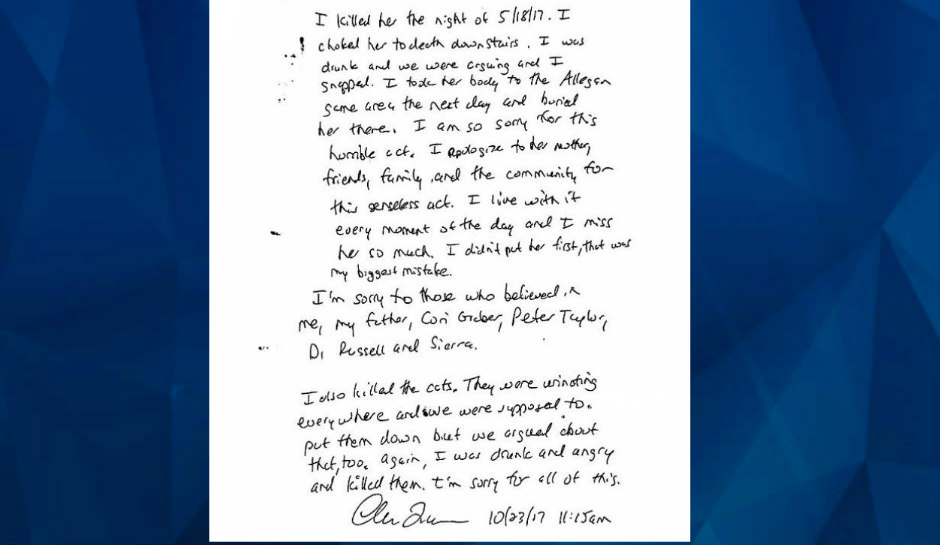 I killed her the night of 5/18/17. I
choked her to death downstairs. I was
drunk and we were arguing and I
snapped. I took her body to the Allegan
game area the next day and buried
her there. I am so sorry for this
horrible act. I apologize to her mother,
friends, family, and the community for
this senseless act. I live with it
every moment of the day and I miss
her so much. I didn't put her first, that was
my biggest mistake.
I'm sorry to those who believed in
me, my father, Cori Peter Taylor,
Russell and Sierra.
I also killed the cats. They were urinating
everywhere and we were supposed to.
put them down but we argued about
that, too. Again, I was drunk and angry
and killed them. I'm sorry for all of this.
10/23/17 11:15am